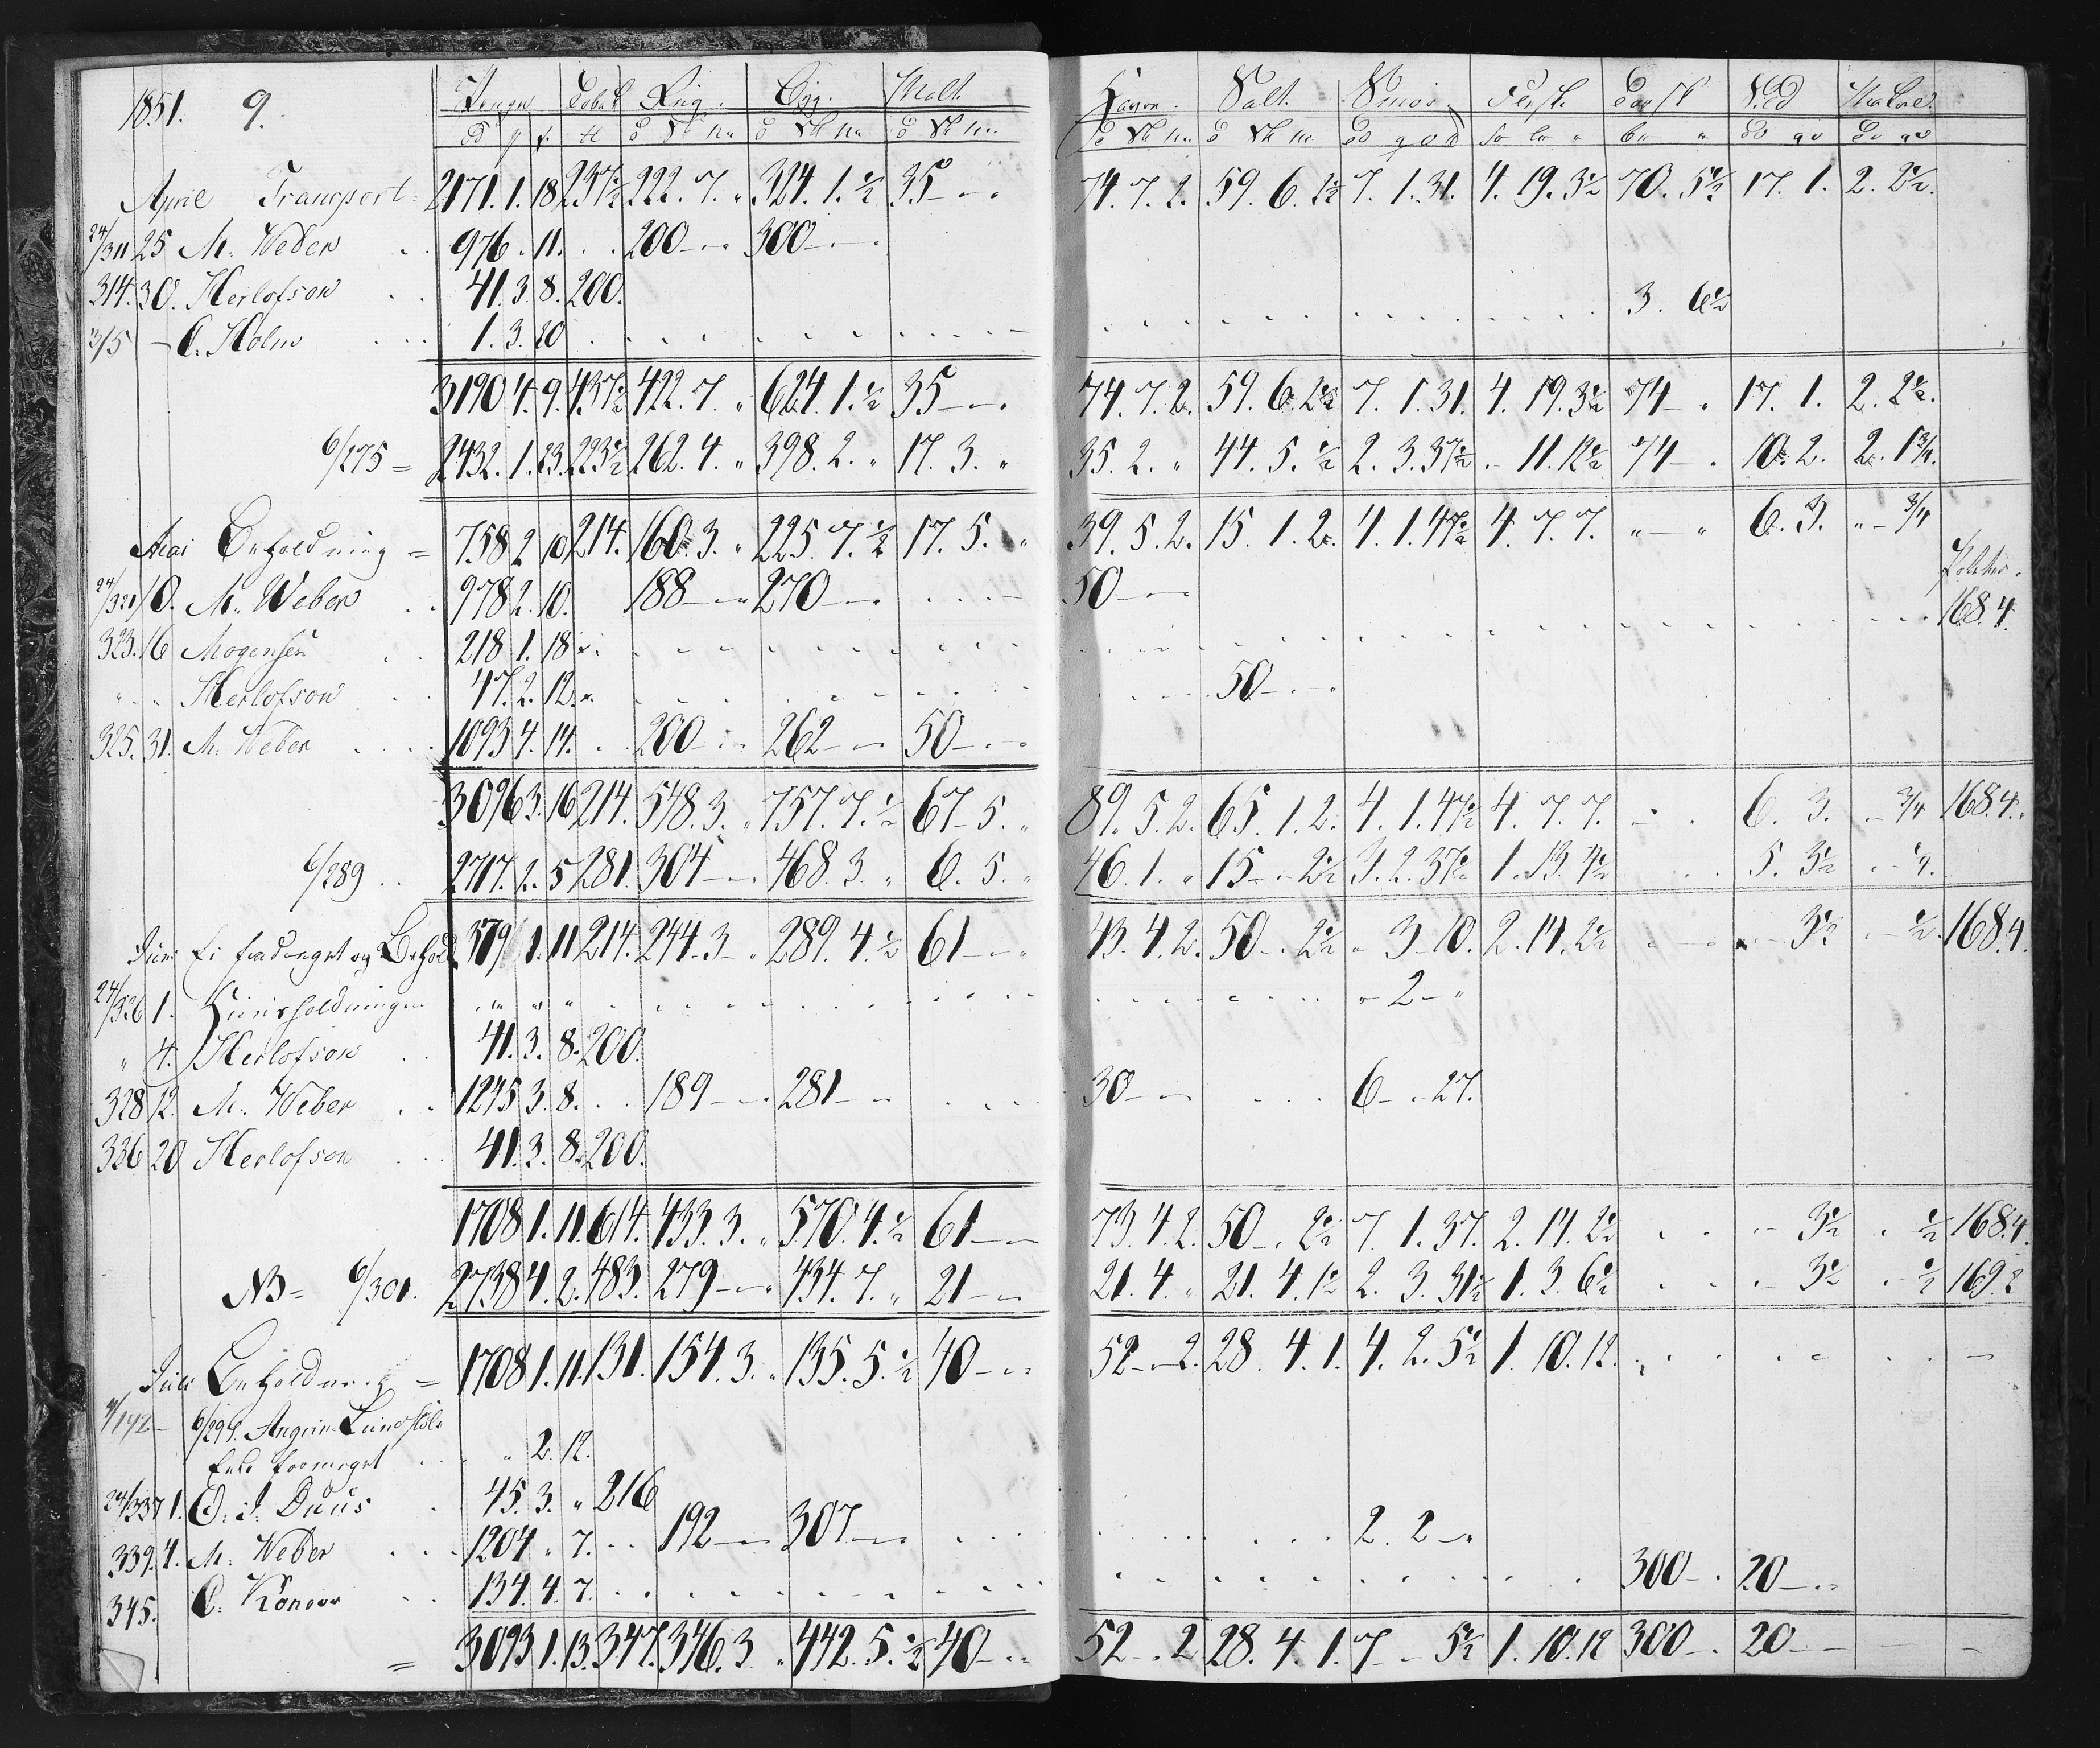 1851. 9. Penge Tobak Rug. Byg. Malt. Havre. Salt. Smør Fersk. Torsk Sild Makrel.
April Transport = 2171. 1. 18 237½ 222. 7. „ 324. 1. ½ 35 — „. 74. 7. 2. 59. 6. 2½ 7. 1. 31. 4. 19. 3½ 70. 5½ 17. 1. 2. 2½.
24/311 25 M. Weber . . 976. „ 11. . . 200 — „ 300 — „
314. 30. Herlofson . . 41. 3. 8. 200. 3. 6½
3/5 — C. Holm . . . 1. 3. 20
3190 4. 9. 437½ 422. 7. „ 624. 1. ½ 35 — „. 74. 7. 2. 59. 6. 2½ 7. 1. 31. 4. 19. 3½ 74 — „ 17. 1. 2. 2½.
6/275 = 2432. 1. 23. 223½ 262. 4. „ 398. 2. „ 17. 3. „ 35. 2. „ 44. 5. ½ 2. 3. 37½ - 11. 12½ 74 — „ 10. 2. 2. 1¾.
Mai Beholdning = 758 2 10 214. 160. 3. „ 225. 7. ½ 17. 5. „ 39. 5. 2. 15. 1. 2. 4. 1. 47½ 4. 7. 7. „ — „ 6. 3. „ - ¾
24/321 10. M. Weber . . 978 2. 10. 188 — „ 270 — „ 50 — „ 168. 4.
323. 16 Mogensen . . 218 1. 18 „.
„ - - Herlofson . . 47. 2. 12. „. 50 — „
325. 31. M. Weber . . . . 1093 4. 14. . . 200 — „ 262 — „ 50 — „
3096 3. 16 214. 548. 3. „ 757. 7. ½ 67 - 5. „ 89. 5. 2. 65. 1. 2. 4. 1. 47½ 4. 7. 7. - . 6. 3. - ¾ 168 4.
6/289 . . 2717. 2. 5 281. 304 — „ 468. 3. „ 6. 5. „ 46. 1. „ 15 - „ 2½ 3. 2. 37½ 1. 13. 4½ 5. 3½ - ¼.
Juni Ei fradraget og Behold. 379 1. 11 214. 244. 3 - „ 289. 4. ½ 61 — „ 43. 4. 2. 50 - „ 2½ „ 3 - 10. 2. 14. 2½ 3½ - ½. 168 4.
24/326 1. Huusholdningen - 2 - „
„ 4. Herlofson . . 41. 3. 8. 200.
328 12. M. Weber . . 1245 3. 8. . . 189 — „ 281 — „ 30 — „ 6 - „ 27.
336 20 Herlofson . . . 41. 3. 8. 200.
1708 1. 11. 614. 433. 3. „ 570. 4. ½ 61 — „ 73. 4. 2. 50 - „ 2½ 7. 1. 37. 2. 14. 2½ - 3½ . ½ 168. 4.
NB = 6/301. 2738 4. 2. 483. 279 — „ 434. 7. „ 21 — „ 21. 4. „ 21. 4. 1½ 2. 3. 31½ 1. 3. 6½ - 3½ - ½ 169. 2
Juli Beholdning = 1708 1. 11. 131. 154. 3. „ 135. 5. ½ 40 — „ 52 — „ 2. 28. 4. 1. 4. 2. 5½ 1. 10. 12.
„ 2. 12.
24/337 1. O. J. Duus . 45. 3. „ 216
339. 4. M. Weber . . . 1204 „ 7. . . 192 — „ 307 — „ 2. 2 — „
345. . . 134. 4. 7. 300 — . 20 — „
= 3093 1. 13. 347. 346. 3 „ 442. 5. ½ 40 — „ 52 — „ 2 28. 4. 1. 7 — „ 5½ 1. 10. 12 300 — . 20 — —